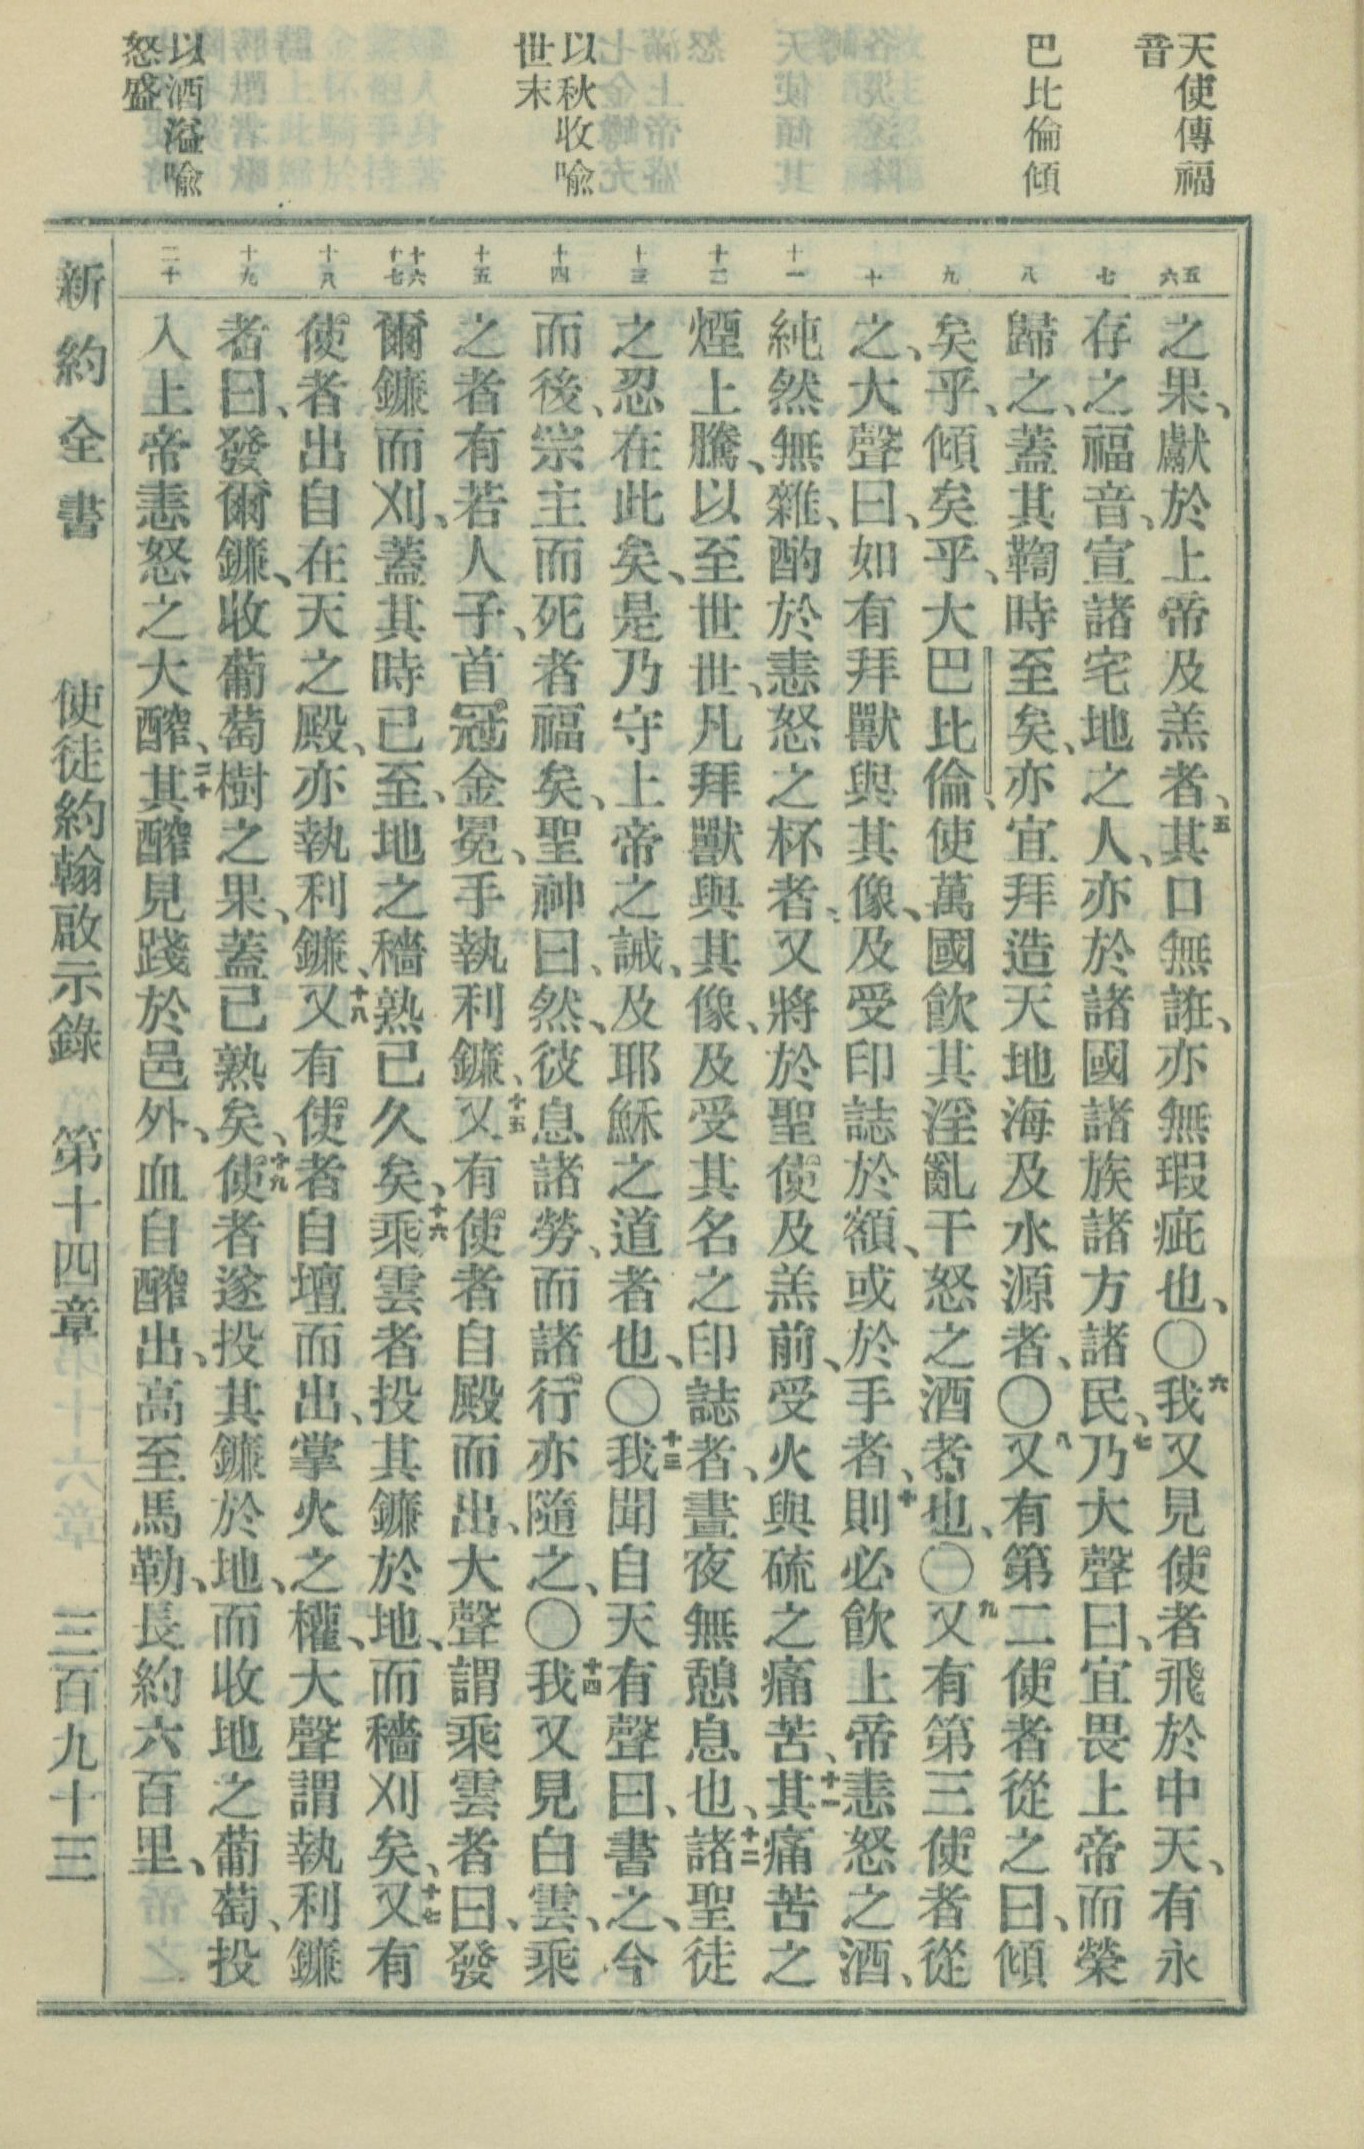 天使傳福
音
巴比倫傾
以秋收喩
世末
以酒溢喩
怒盛
五
六
七
八
九
十
十一
十二
十三
十四
十五
十六
十七
十八
十九
二十
之果、獻於上帝及羔者、五其口無誑、亦無瑕疵也、〇六我又見使者飛於中天、有永
存之福音、宣諸宅地之人、亦於諸國諸族諸方諸民、七乃大聲曰、宜畏上帝而榮
歸之、蓋其鞫時至矣、亦宜拜造天地海及水源者、〇八又有第二使者從之曰、傾
矣乎、傾矣乎、大巴比倫、使萬國飮其淫亂干怒之酒者也、〇九又有第三使者從
之、大聲曰、如有拜獸與其像、及受印誌於額、或於手者、十則必飮上帝恚怒之酒、
純然無雜、酌於恚怒之杯者、又將於聖使及羔前、受火與硫之痛苦、十一其痛苦之
煙上騰、以至世世、凡拜獸與其像、及受其名之印誌者、晝夜無憩息也、十二諸聖徒
之忍在此矣、是乃守上帝之誡、及耶穌之道者也、〇十三我聞自天有聲曰、書之、今
而後、宗主而死者福矣、聖神曰、然、彼息諸勞、而諸行亦隨之、〇十四我又見白雲、乘
之者有若人子、首冠金冕、手執利鐮、十五又有使者自殿而出、大聲謂乘雲者曰、發
爾鐮而刈、蓋其時已至、地之穡熟已久矣、十六乘雲者投其鐮於地、而穡刈矣、十七又有
使者出自在天之殿、亦執利鐮、十八又有使者自壇而出、掌火之權、大聲謂執利鐮
者曰、發爾鐮、收葡萄樹之果、蓋已熟矣、十九使者遂投其鐮於地、而收地之葡萄、投
入上帝恚怒之大醡、二十其醡見踐於邑外、血自醡出、高至馬勒、長約六百里、
新約全書 使徒約翰啟示錄 第十四章 三百九十三